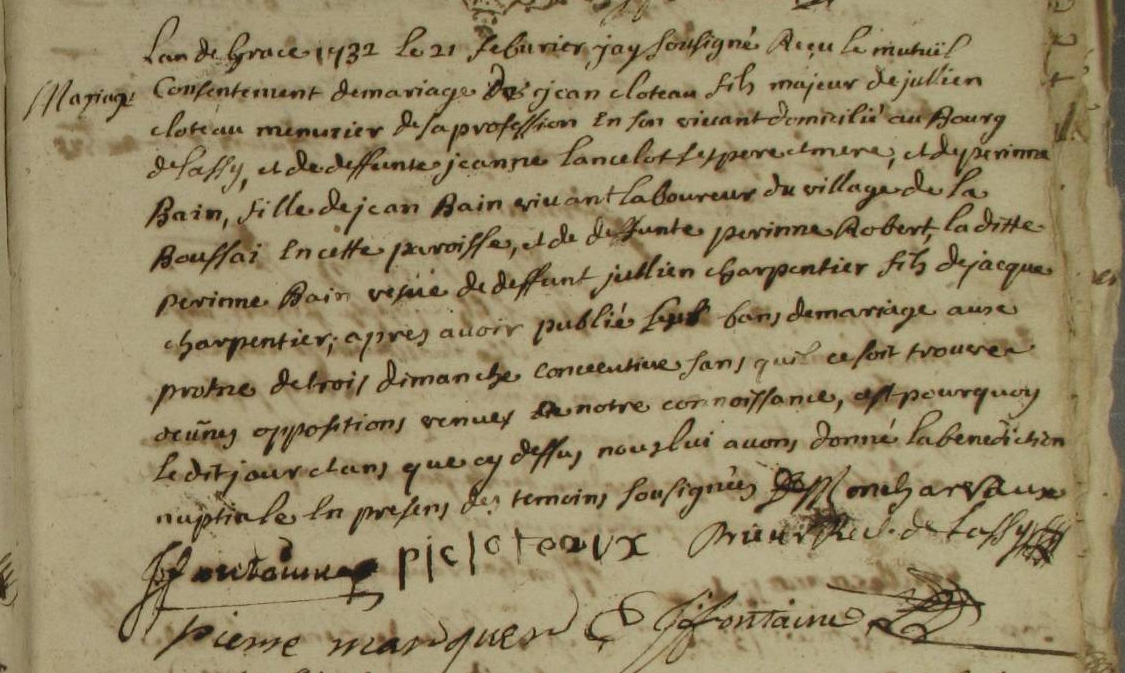 Lan de Grace 1732 le 21 feburier jay sousigné Reçu le mutuël
Mariage Consentement demariage De jean cloteau fils majeur de jullien
cloteau menuzier de sa profession En son vivant domicilié au Bourg
de lassy, et de deffunte jeanne lancelot ses pere et mere, et de perinne
Bain, fille de jean Bain vivant laboureur du village de la
Boussai En cette paroisse, et de deffunte perinne Robert, la ditte
perinne Bain vesüe de deffunt jullien charpentier fils de jacque
charpentier; apres avoir publié bans de mariage aux
protne de trois dimanche concecutive sans quil ce soit trouvee
ocunes oppositions venues De notre connoissance, est pourquoy
le dit jour et ans que cy dessus nous lui avons donné la benediction
nuptiale En presens des temoins sousignées De Moncharvaux
ffontaine p j c l o t e a u x Prieur Rec. de Lassy
pierre marquer ffontaine